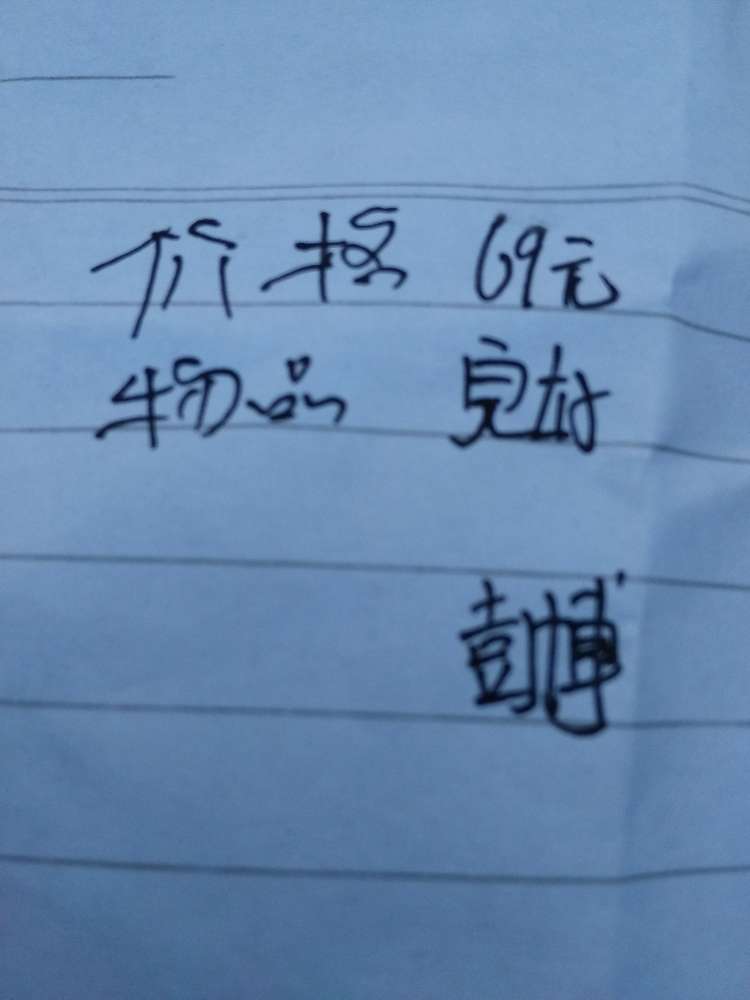 价格 69元
物品
彭博